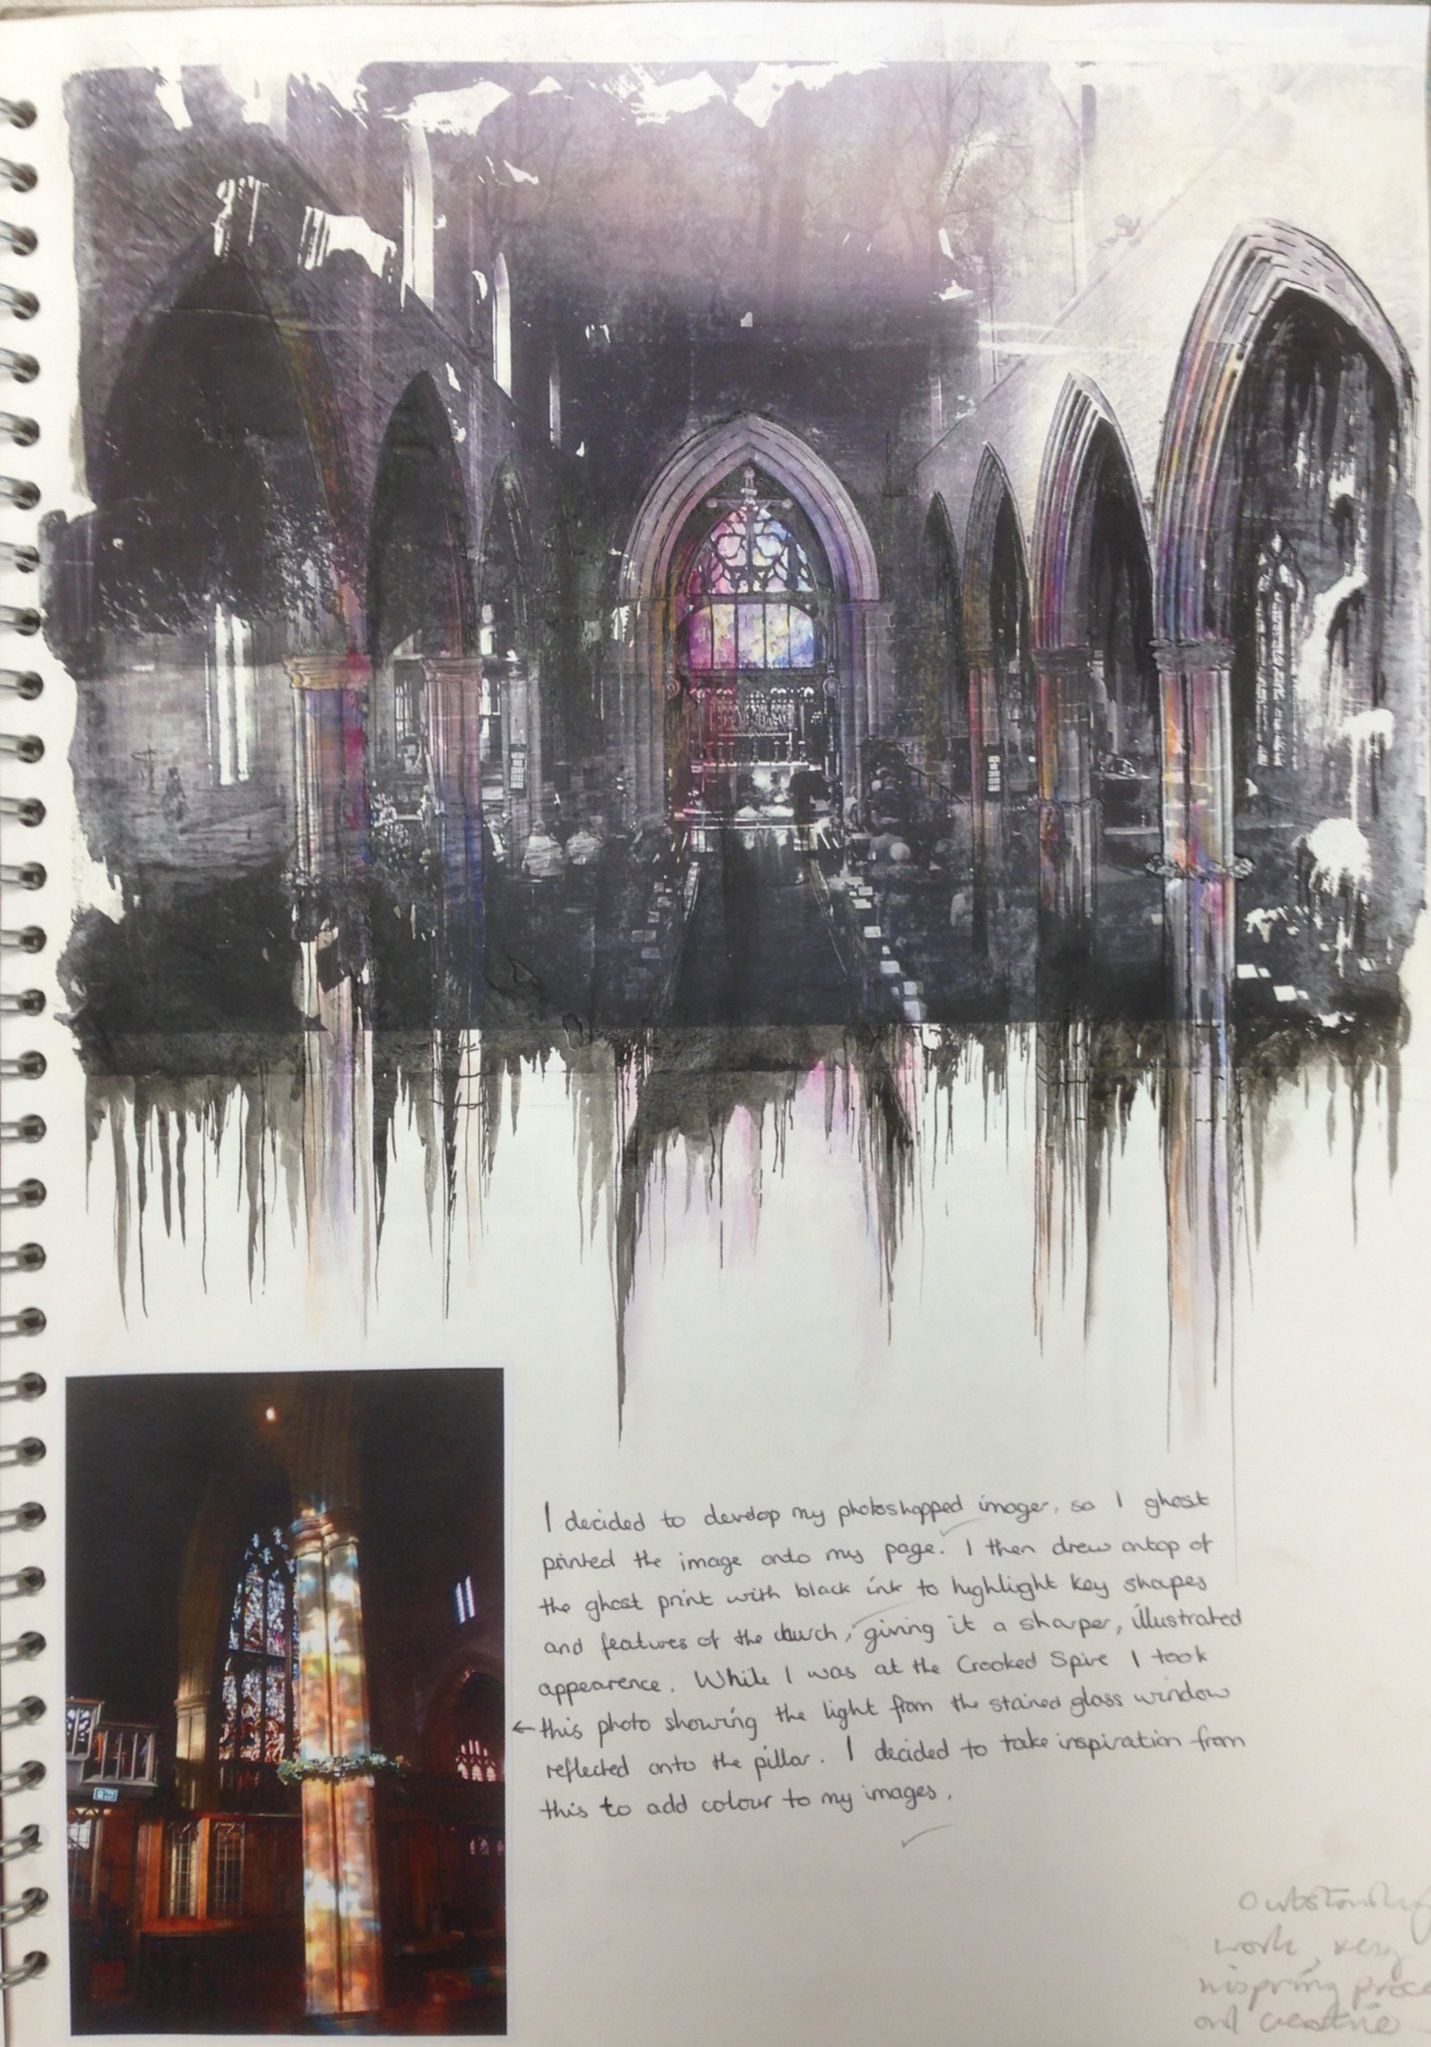 I decided to develop my photoshopped images, so I ghost
printed the image onto my page. I then drew ontop of
the ghost print with black ink to highlight key shapes
and features of the church, giving it a sharper, illustrated
appearence. While I was at the Crooked Spire I took
←this photo showing the light from the stained glass window
reflected onto the pillar. I decided to take inspiration from
this to add colour to my images.
Outstanding
work, very
inspiring
and creative